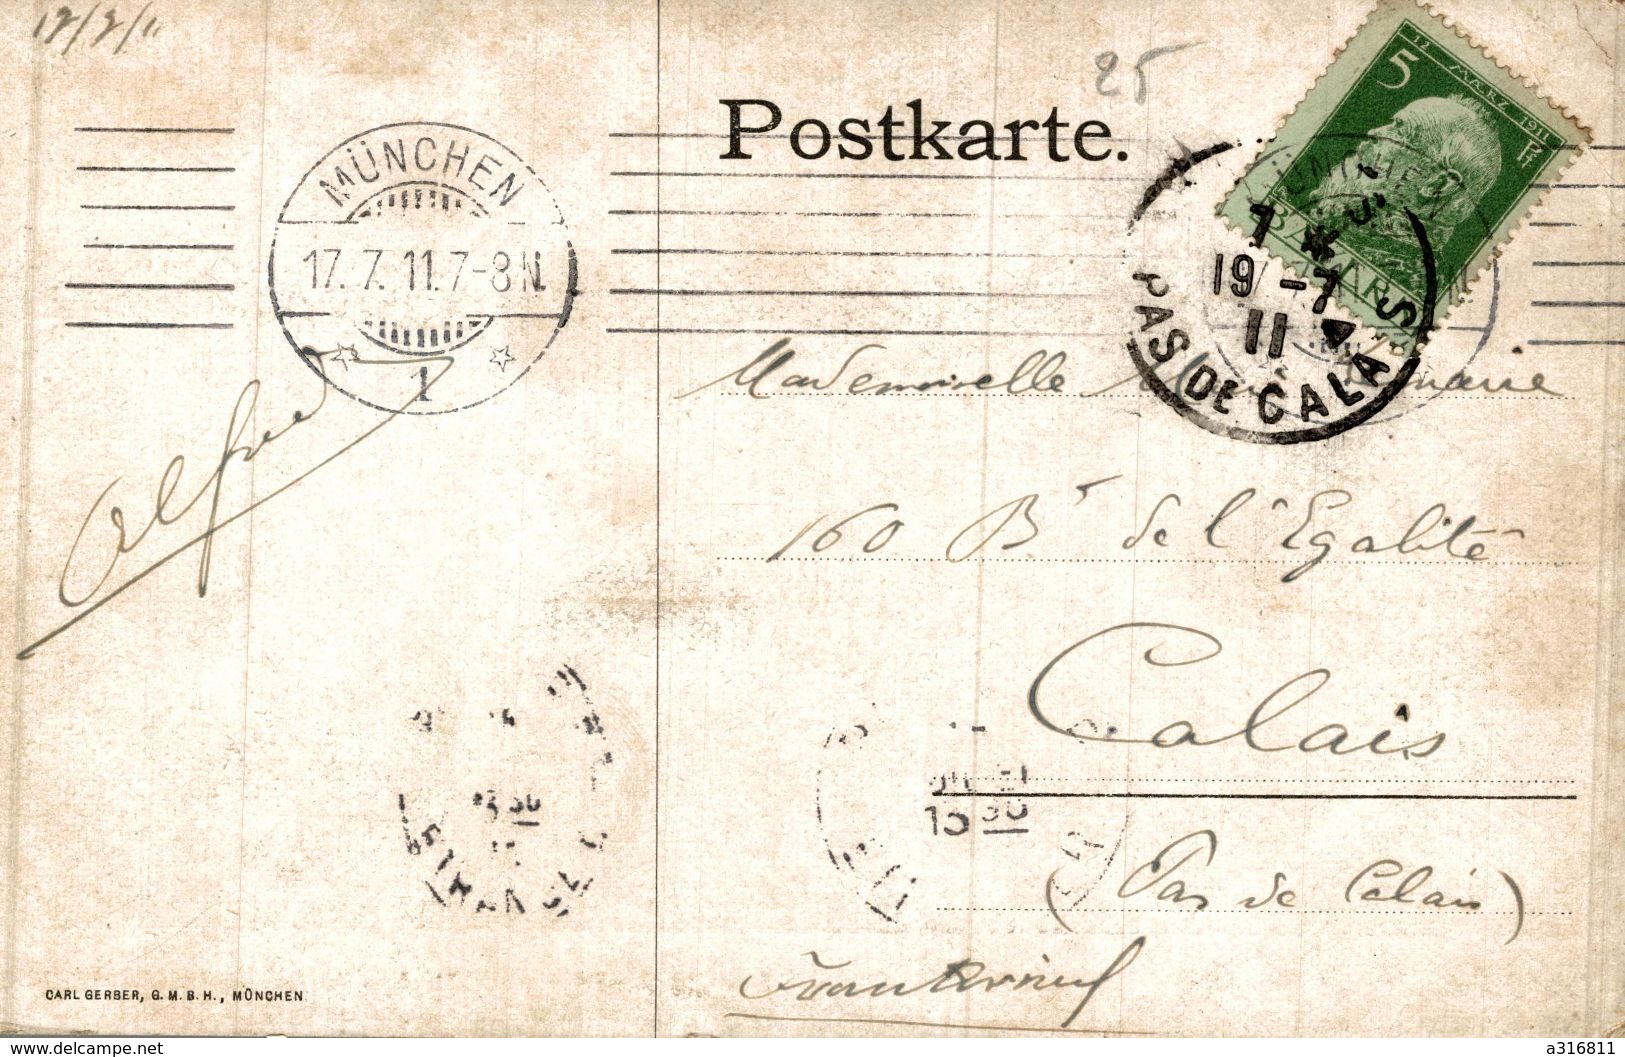 17/7/11
25
Postkarte.
12. MAERZ 1911
5 Pf
BAYERN
MÜNCHEN
17. 7. 11. 7-8 N.
1
7
19 -7
11
PAS DE CALAIS
Mademoiselle
160 Bd de l'Egalité
Calais
(Pas de Calais)
Frankreich
Alfred
30
CARL GERBER, G.M.B.H., MÜNCHEN
www.delcampe.net
a316811